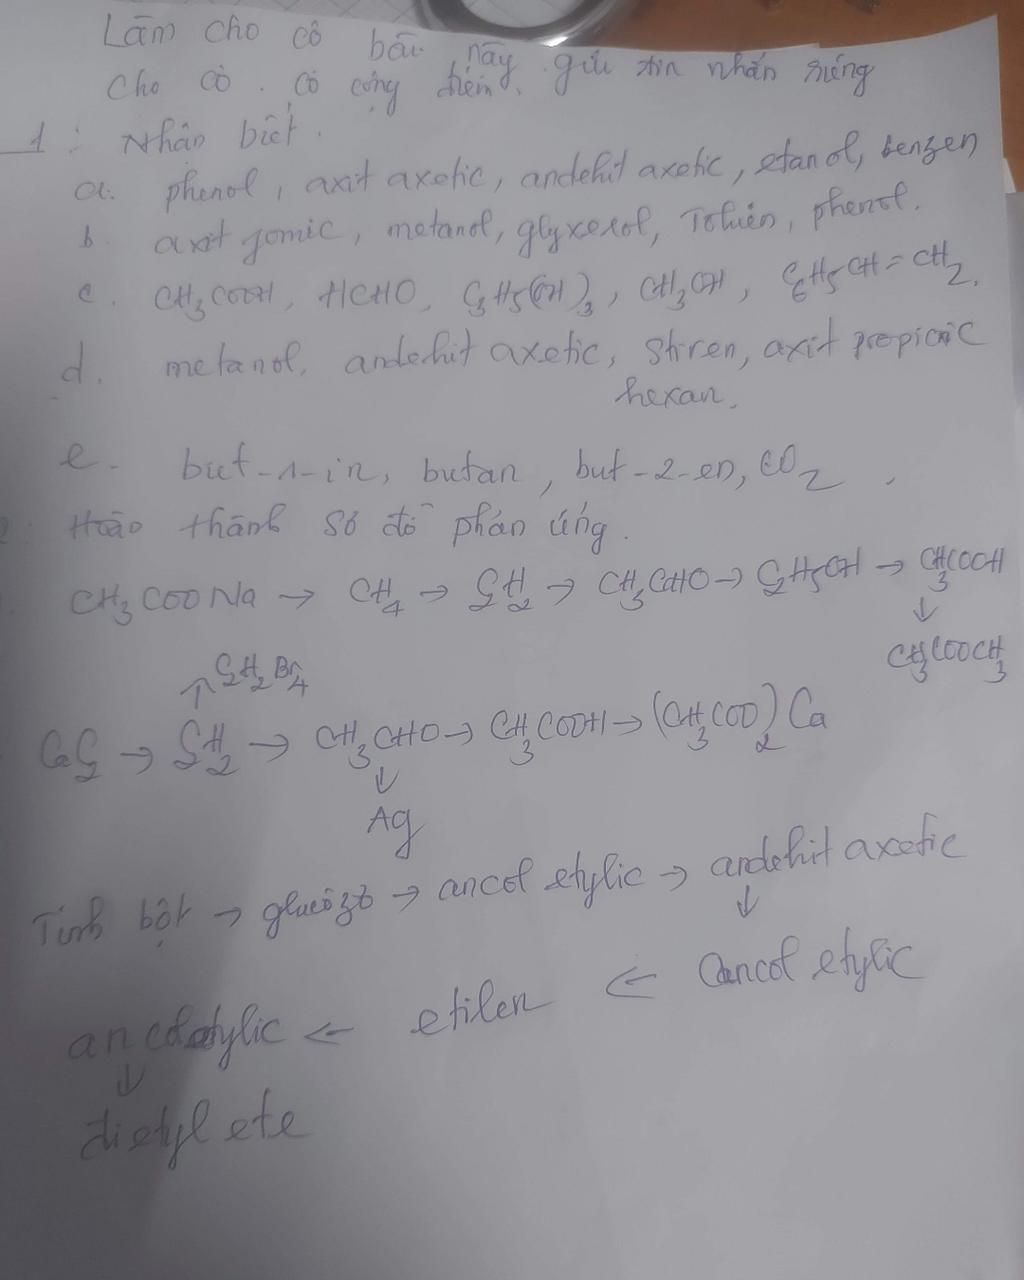 Làm cho cô bài này gửi tin nhắn riêng
cho cô. Có cộng điểm.
1: Nhận biết.
a. phenol, axit axetic, andehit axetic, etanol, benzen
b. axit fomic, metanol, glyxerol, Toluen, phenol.
c. CH3COOH, HCHO, C3H5(OH)3, CH3OH, C6H5CH=CH2.
d. metanol, andehit axetic, Stiren, axit propionic
hexan.
e. but-1-in, butan, but-2-en, CO2.
2. Hoàn thành sơ đồ phản ứng.
CH3COONa → CH4 → C2H2 → CH3CHO → C2H5OH → CH3COOH
↓
CH3COOCH3
↑ C2H2Br4
CaC2 → C2H2 → CH3CHO → CH3COOH → (CH3COO)2Ca
↓
Ag
Tinh bột → glucôzơ → ancol etylic → andehit axetic
↓
ancol etylic ← etilen ← ancol etylic
↓
dietyl ete